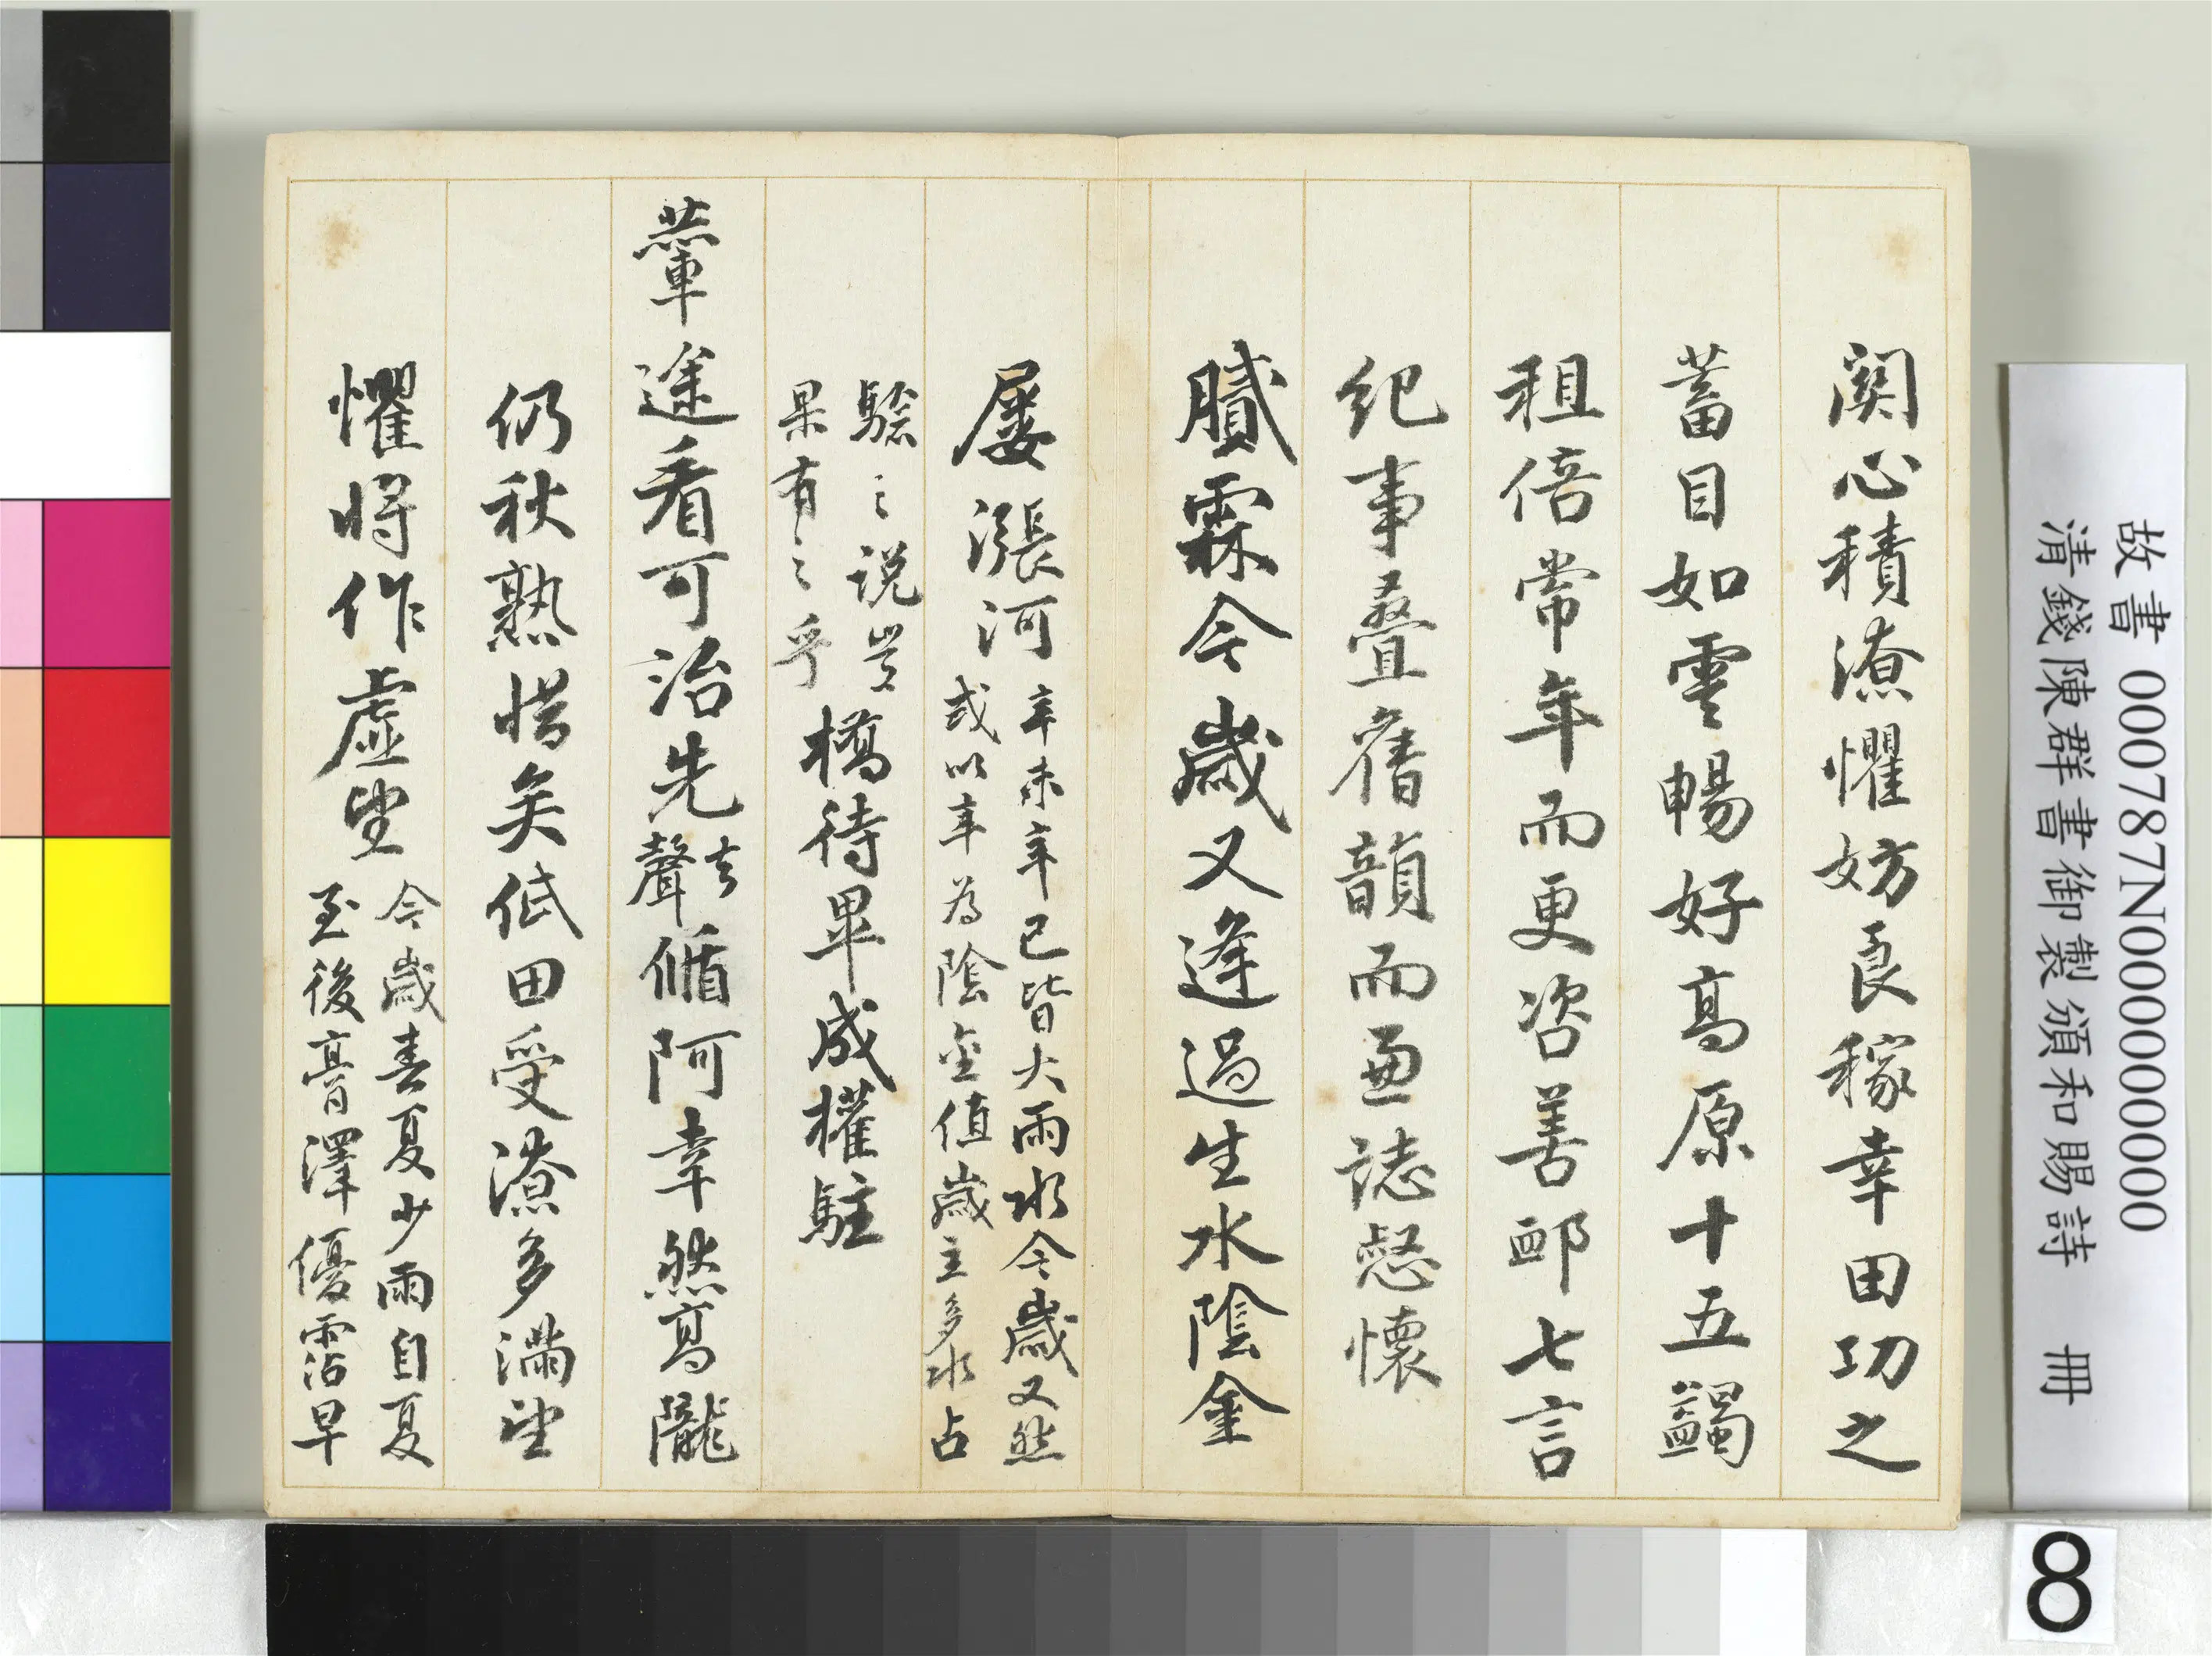 関心積潦懼妨良稼幸田功之
蓄目如雲暢好高原十五蠲
租倍常年而更咨善郵七言
紀事疊舊韻而面誌慰懷
膩霖今歲又逢過生水陰金
屢漲河
辛未辛巳皆大雨水今歲又然
或以辛為陰金值歲主多水占
驗之說豈
果有之乎
橋待畢成權駐
輦途看可治先去聲循阿幸然高隴
仍秋熟惜矣低田受潦多滿望
懼將作虛望
今歲春夏少雨自夏
至後膏澤優霑早
故書 000787N000000000
清錢陳群書御製頒和賜詩 冊
8